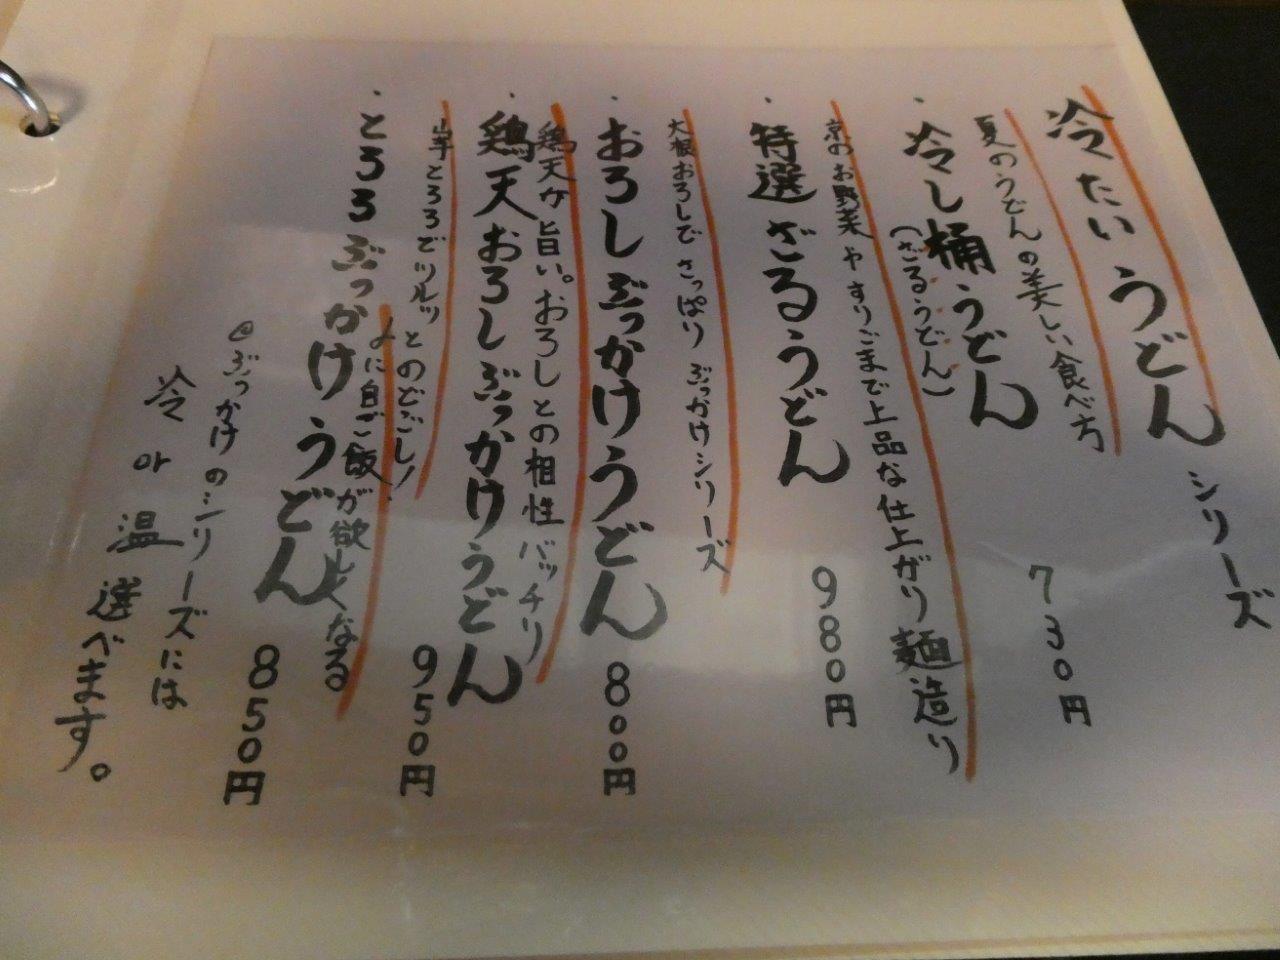 冷たいうどんシリーズ
夏のうどんの美しい食べ方
・冷し桶うどん 730円
(ざるうどん)
京のお野菜やすりごまで上品な仕上がり麺造り
・特選ざるうどん 980円
大根おろしでさっぱりぶっかけシリーズ
・おろしぶっかけうどん 800円
鶏天が旨い。おろしとの相性バッチリ
・鶏天おろしぶっかけうどん 950円
山芋とろろでツルッとのどごし!
〆に白ご飯が欲しくなる
・とろろぶっかけうどん 850円
@ぶっかけのシリーズには
冷or温選べます。